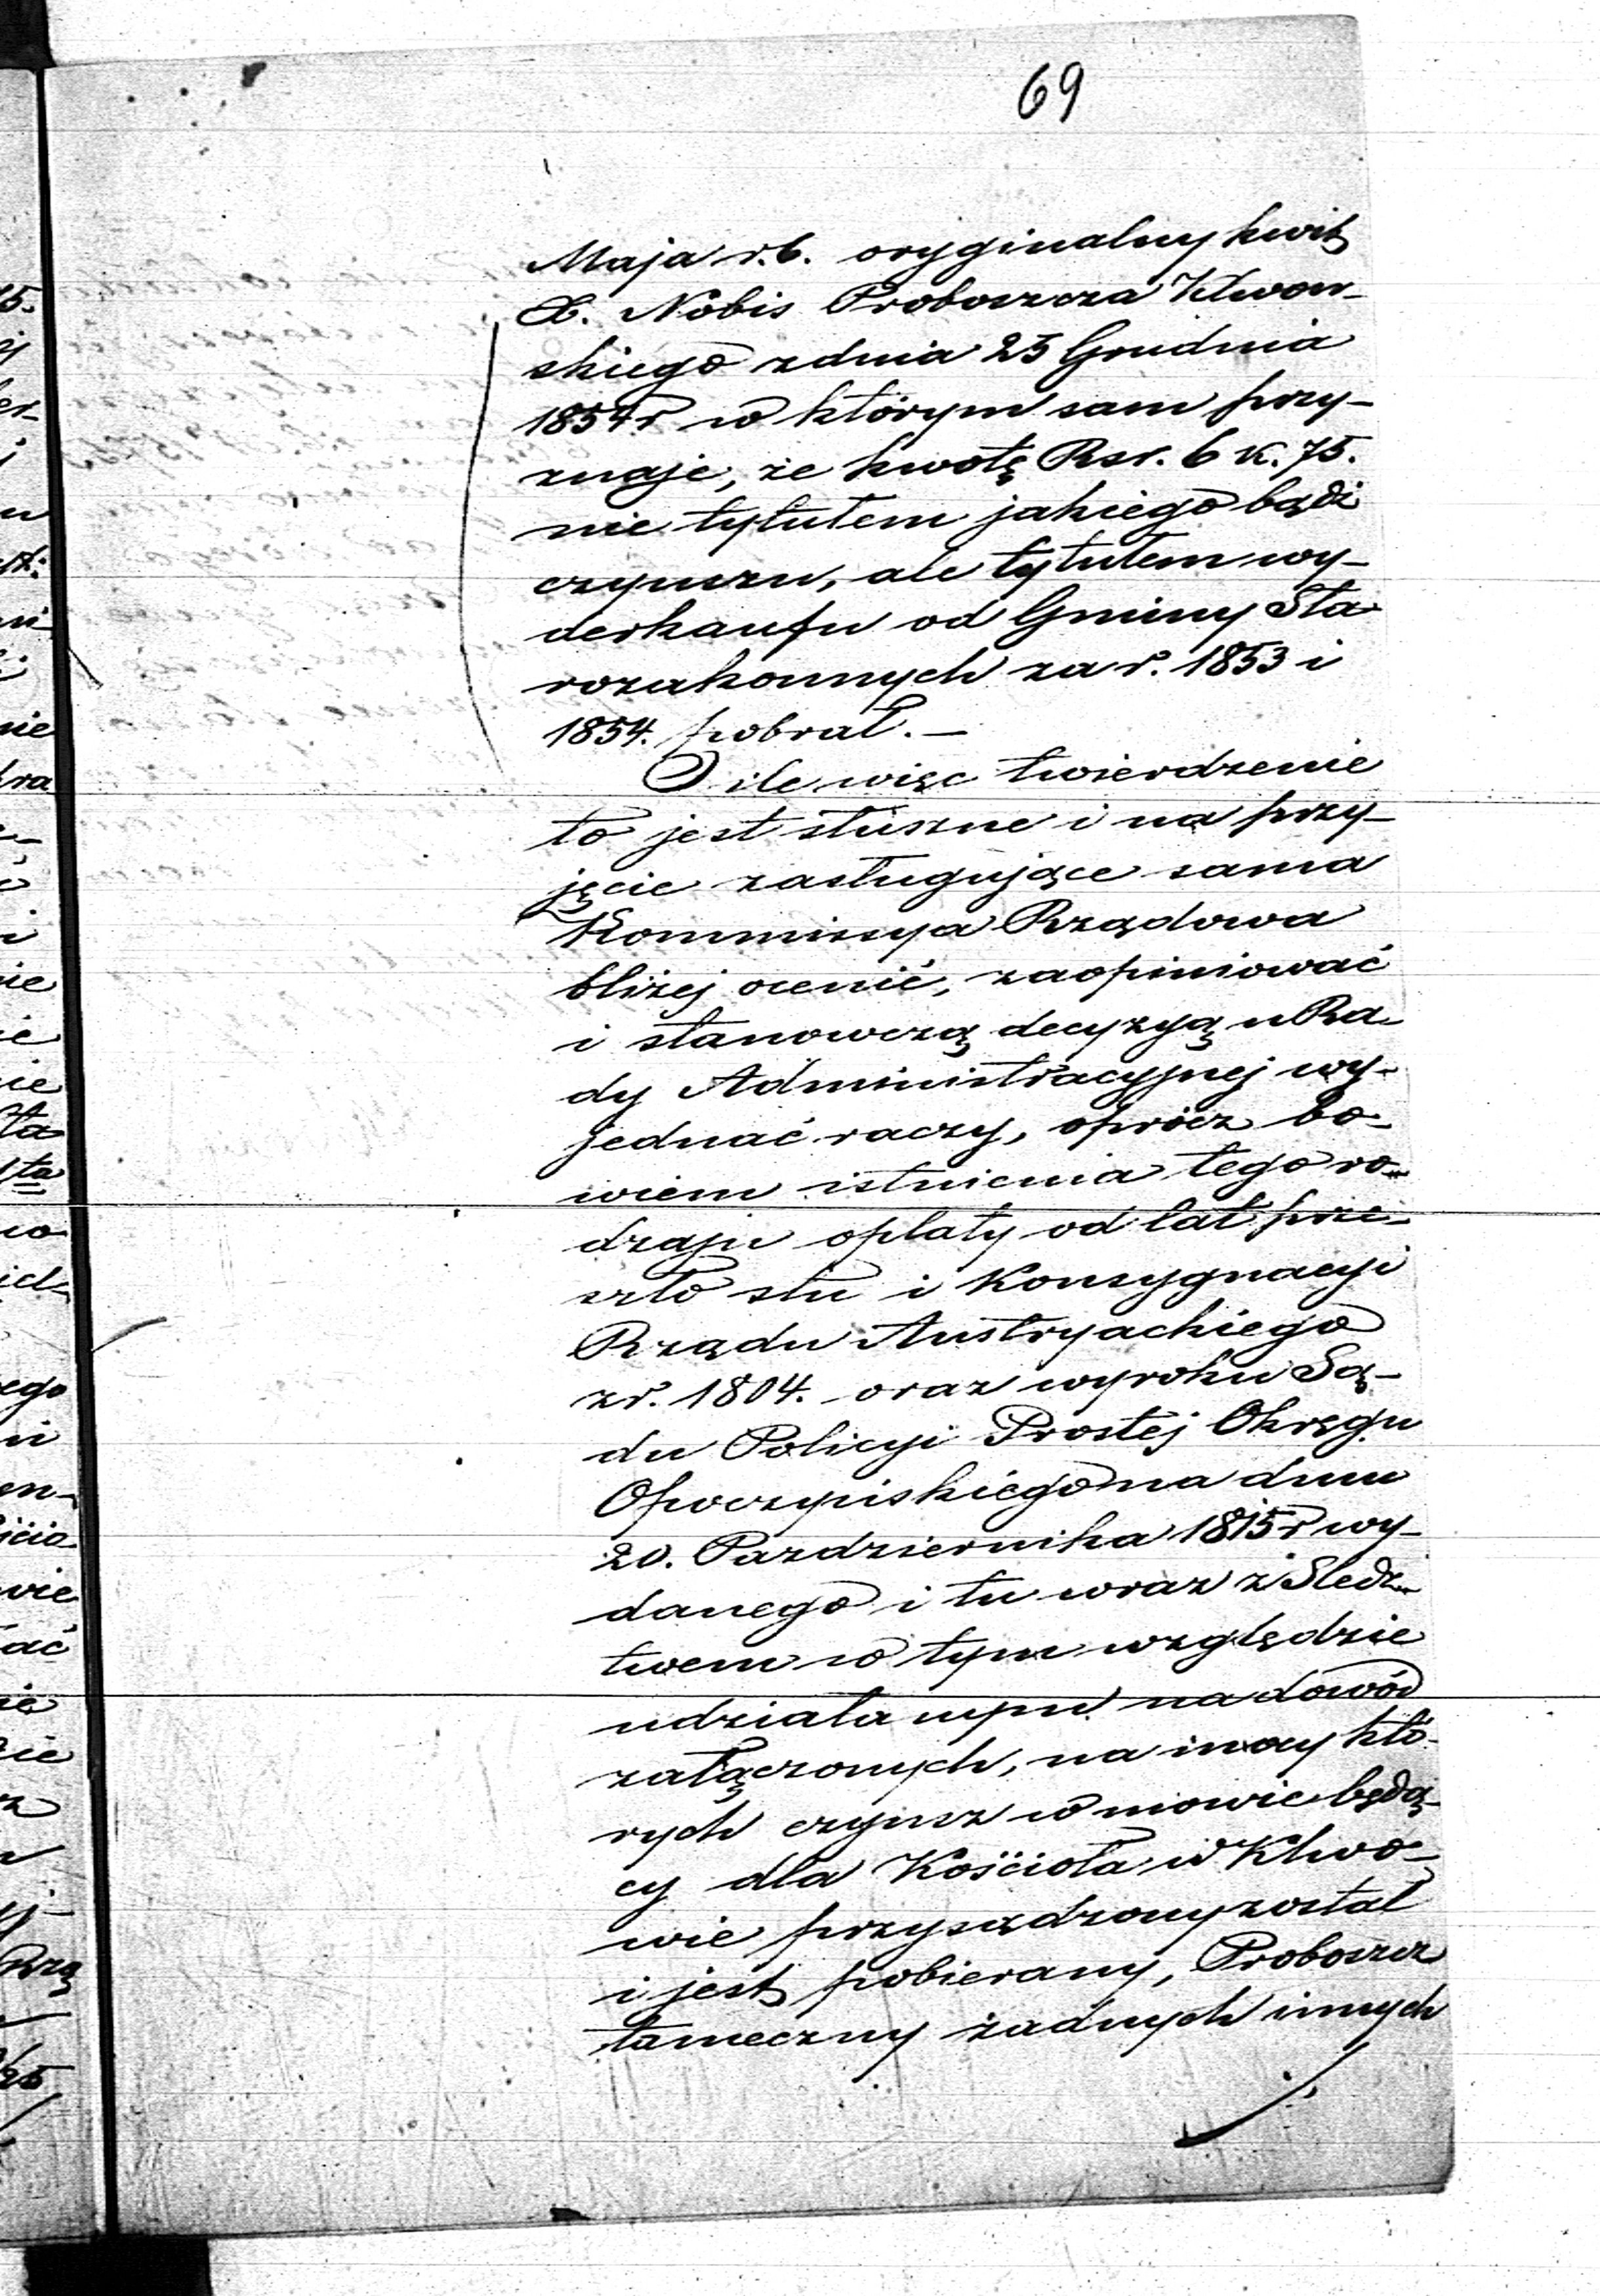 69
Maja r.b. oryginalny kwit
X. Nobis Proboszcza Klwow-
skiego z dnia 23 Grudnia
1854 r w którym sam przy-
znaje, że kwotę Rsr. 6 k. 75.
nie tytułem jakiego bądź
czynszu, ale tytułem wy-
derkaufu od Gminy Sta
rozakonnych za r. 1853 i
1854. pobrał. —
O ile więc twierdzenie
to jest słuszne i na przy-
jęcie zasługujące sama
Kommissya Rządowa
bliżej ocenić, zaopiniować
i stanowczą decyzyą u Ra-
dy Administracyjnej wy-
jednać raczy, oprócz bo-
wiem istnienia tego ro-
dzaju opłaty od lat prze-
szło stu i Konsygnacyi
Rządu Austryackiego
z r. 1804. oraz wyroku Są-
du Policyi Prostej Okręgu
Opoczyńskiego na dniu
20. Pazdziernika 1815 r wy-
danego i tu wraz z Sledz-
twem w tym względzie
udziałanym na dowód
załączonych, na mocy któ-
rych czynsz w mowie będą-
cy dla Kościoła w Klwo-
wie przysądzony został
i jest pobierany, Proboszcz
tameczny żadnych innych